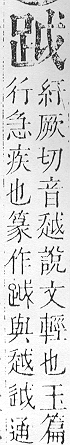 䟠
紆厥切音越說文輕也玉篇
行急疾也篆作䟠與越通